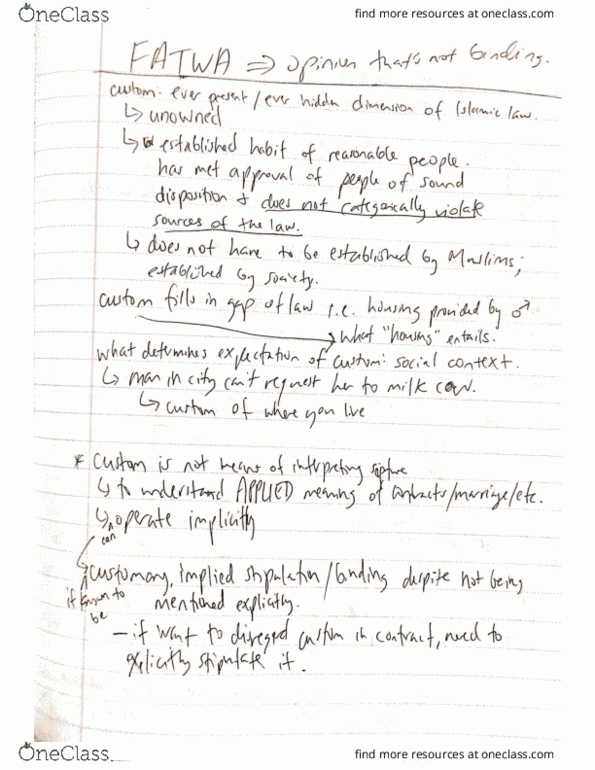 OneClass
find more resources at oneclass.com
FATWA ⇒ opinion that's not binding.
custom: ever present/ever hidden dimension of Islamic law.
↳ unowned
↳ established habit of reasonable people.
has met approval of people of sound
disposition & does not categorically violate
sources of the law.
↳ does not have to be established by Muslims;
established by society.
custom fills in gap of law i.e. housing provided by ♂
→ what "housing" entails.
what determines expectation of custom: social context.
↳ man in city can't request her to milk cow.
↳ custom of where you live
* custom is not means of interpreting
↳ to understand APPLIED meaning of contracts/marriage/etc.
↳ can operate implicitly
↳ if known to be customary, implied stipulation/binding despite not being
mentioned explicitly.
- if want to disregard custom in contract, need to
explicitly stipulate it.
OneClass
find more resources at oneclass.com